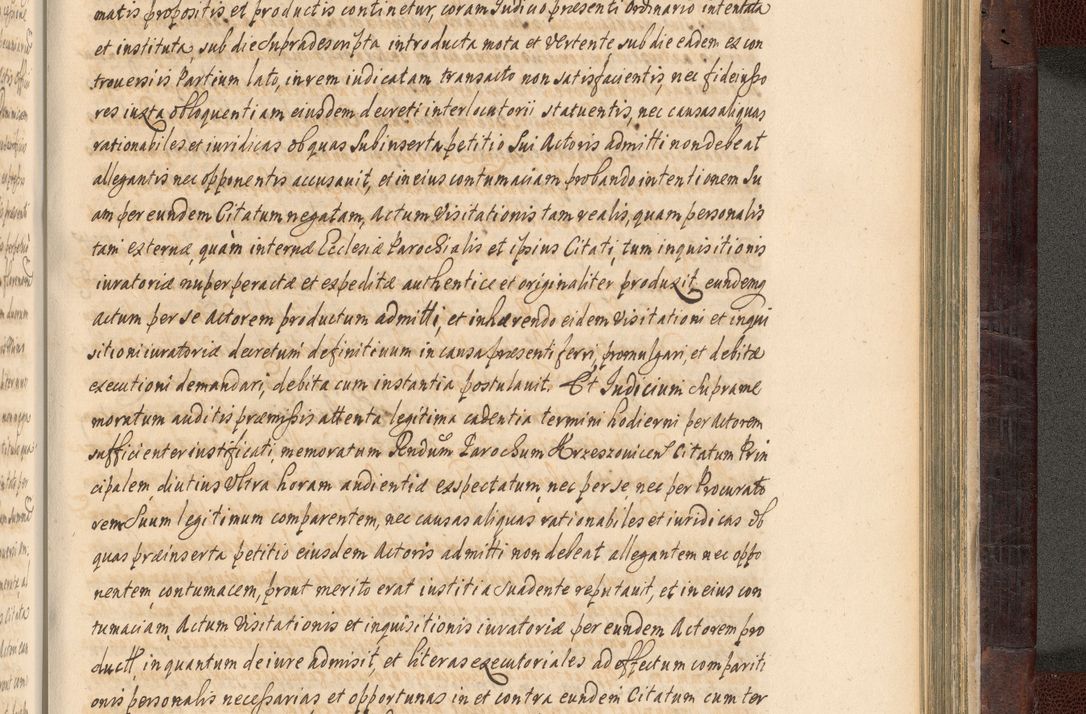 matis propositis et productis continetur, coram Iudicio præsenti ordinario intentata
et instituta, sub die supradescripta introducta mota et vertente sub die eadem ex con
troversiis Partium lato, in rem iudicatam transacto non satisfacientis, nec fideiusso
res iuxta obloquentiam eiusdem decreti interlocutorii statuentis, nec causas aliquas
rationabiles et iuridicas ob quas subinserta petitio sui Actoris admitti non debeat
allegantis nec opponentis accusavit, et in eius contumaciam probando intentionem su
am per eundem Citatum negatam, Actum Visitationis tam realis, quam personalis
tam externæ, quàm internæ Ecclesiæ Parochialis et ipsius Citati, tum inquisitionis
iuratoriæ nuper peractæ et expeditæ authentice et originaliter produxit, eundemq
actum per se Actorem productum admitti, et inhærendo eidem Visitationi et inqui
sitioni iuratoriæ decretum definitivum in causa præsenti ferri, promulgari, et debitæ
executioni demandari, debita cum instantia postulavit. Et Iudicium supra me
moratum auditis præmissis attenta legitima cadentia termini hodierni per Actorem
sufficienter iustificati, memoratum Rndum Parochum Krzeszovicen Citatum Prin
cipalem, diutius Ultra horam audientiæ exspectatum, nec per se, nec per Procurato
rem Suum legitimum comparentem, nec causas aliquas rationabiles et iuridicas ob
quas præinserta petitio eiusdem Actoris admitti non debeat allegantem nec oppo
nentem, contumacem, prout merito erat iustitia suadente reputavit, et in eius con
tumaciam, Actum Visitationis et inquisitionis iuratoriæ per eundem Actorem pro
duct, in quantum de iure admisit, et literas executoriales ad effectum compariti
onis personalis necessarias et opportunas in et contra eundem Citatum cum ter